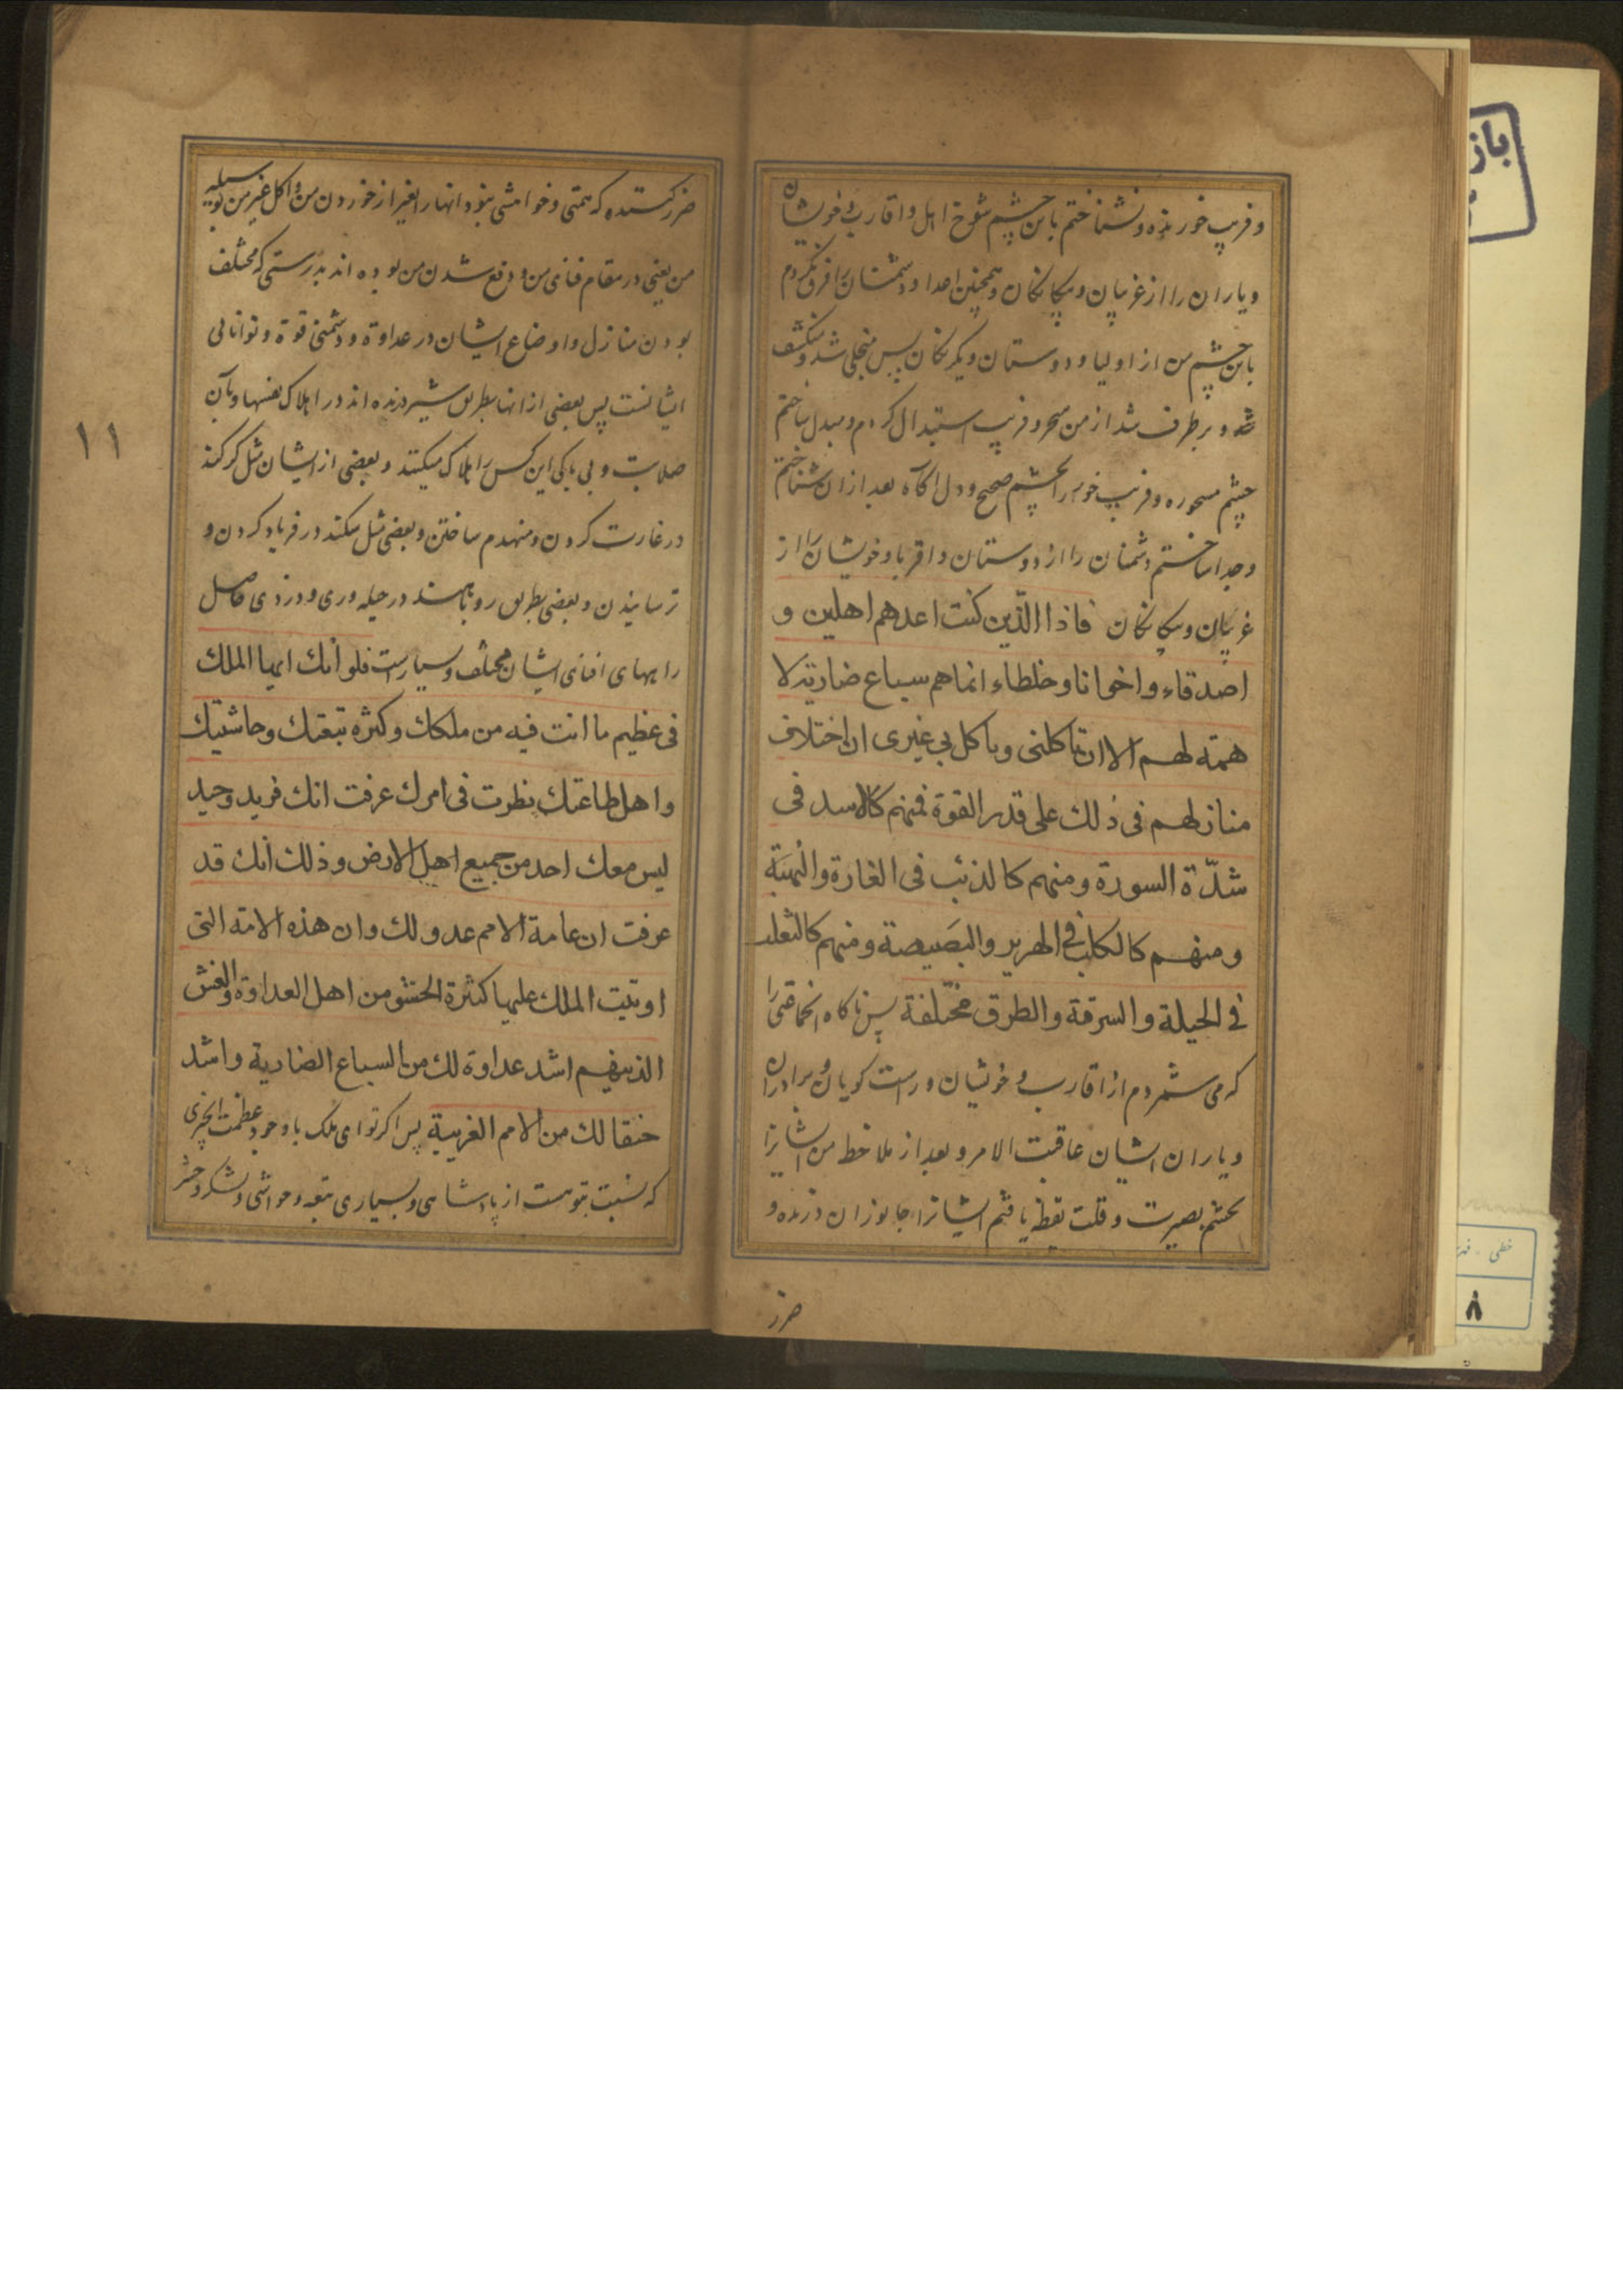 و فریب خورنده و نشناختم باین چشم شوخ اهل و اقارب و خویشان
و یاران را از غریبان و بیکانکان و همچنین اعدا و دشمنان را فرق نکردم
باین چشم من از اولیا و دوستان و یکرنکان پس منجلی شد و منکشف
شد و برطرف شد از من سحر و فریب استبدال کردم و مبدل ساختم
چشم مسحوره و فریب خورا بچشم صحیح و دل آکاه بعد از ان شناختم
و جدا ساختم دشمنان را از دوستان و اقربا و خویشان را از
غریبان و بیکانکان فاذا الذین کنت اعدهم اهلین و
اصدقاء و اخوانا و خلطاء انما هم سباع ضاریة لا
همة لهم الا ان تاکلنی و تاکل بی غیری ان اختلاف
منازلهم فی ذلك علی قدر القوة فمنهم کالاسد فی
شدّة السورة و منهم کالذئب فی الغارة و النهبة
و منهم کالکلب فی الهریر و البصبصة و منهم کالثعلب
فی الحیلة و السرقة و الطرق مختلفة پس ناکاه انجماعتی را
که می شمردم از اقارب و خویشان و راست کویان و برادران
و یاران ایشان عاقبت الامر و بعد از ملاحظه من ایشانرا
بچشم بصیرت و قلت یقظه یافتم ایشانرا جانوران درنده و
ضرر
ضرر کننده که همتی و خواهشی نبود انها را بغیر از خوردن من و اکل غیر من بوسیله
من یعنی در مقام فنای من و دفع شدن من بوده اند بدرستی که مختلف
بودن منازل و اوضاع ایشان در عداوة و دشمنی قوة و توانائی
ایشانست پس بعضی از انها بطریق شیر درنده اند در اهلاک نفسها و بآن
صلابت و بی باکی این کس را هلاک میکنند و بعضی از ایشان مثل کرکند
در غارت کردن و منهدم ساختن و بعضی مثل سکند در فریاد کردن و
ترسانیدن و بعضی بطریق روباهند در حیله وری و دزدی حاصل
راههای افنای ایشان مختلف و بسیارست فلو انك ایها الملك
فی عظیم ما انت فیه من ملکك و کثرة تبعتك و حاشیتك
و اهل طاعتك نظرت فی امرك عرفت انك فرید وحید
لیس معك احد من جمیع اهل الارض و ذلك انك قد
عرفت ان عامة الامم عدو لك و ان هذه الامة التی
اوتیت الملك علیها کثیرة الحشو من اهل العداوة و الغش
الذینهم اشد عداوة لك من السباع الضاریة و اشد
حنقا لك من الامم الغریبة پس اکر تو ای ملک با وجود عظمت انچیزی
که نسبت بتوهست از پادشاهی و بسیاری تبعه و حواشی و لشکر و حشر
۱۱
باز
خطی
۸